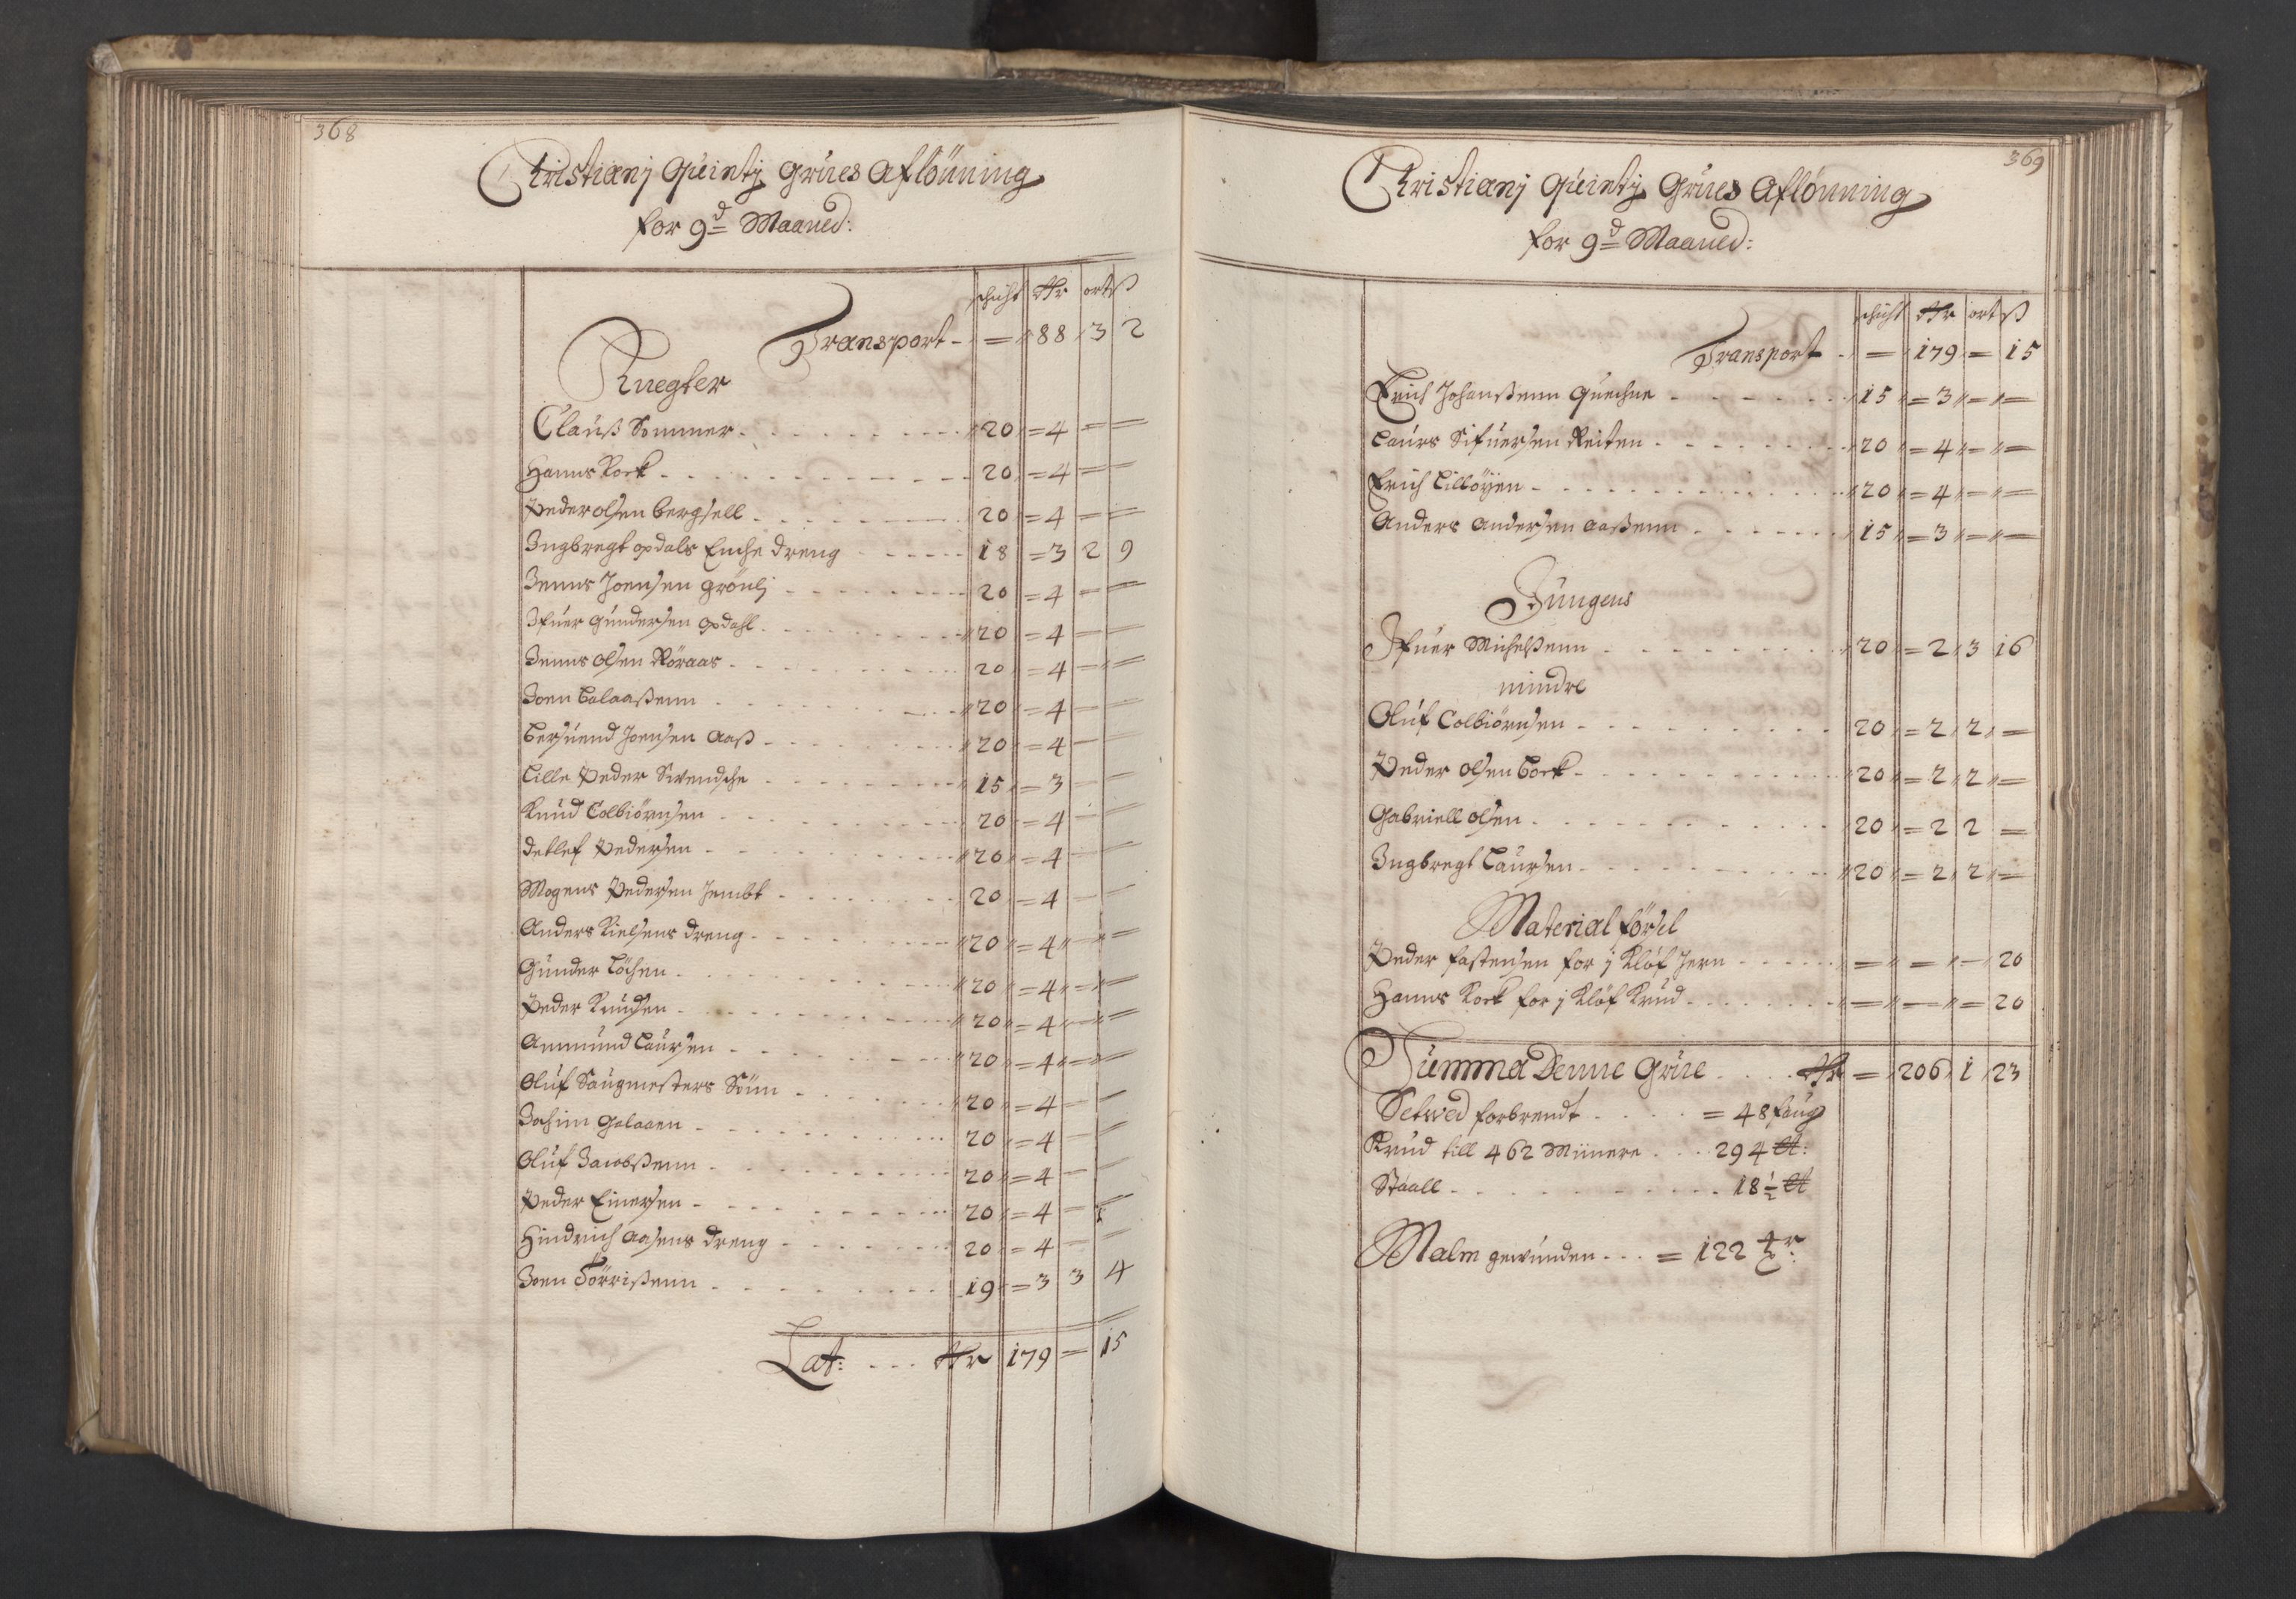 368
Christianj Qveintj Grues Aflönning
for 9d Maaned:
schicht Rdr ort ß
Transport - = 88 3 2
Knegter
Clauß Sommer - 20 = 4 - -
Hanns Kock - 20 = 4 - -
Peder olsen bergsell - 20 = 4 - -
Ingbregt opdals Enche dreng - 18 = 3 2 9
Jenns Joensen grönlj - 20 = 4 - -
Ifuer gundersen opdahl - 20 = 4 - -
Jenns olsen Röraas - 20 = 4 - -
Joen Aalaaßenn - 20 = 4 - -
Bersuend Joensen Aaß - 20 = 4 - -
Lille Peder Swendsche - 15 = 3 - -
Knud Colbiörnsen - 20 = 4 - -
detlef Pedersen - 20 = 4 - -
Mogens Pedersen Jembt - 20 = 4 - -
Anders Nielsens dreng - 20 = 4 - -
Gunder Löchen - 20 = 4 - -
Peder Knudsen - 20 = 4 - -
Ammund Laursen - 20 = 4 - -
Oluf Saugmesters Sönn - 20 = 4 - -
Jochim Galaaen - 20 = 4 - -
Oluf Jacobßenn - 20 = 4 - -
Peder Einersen - 20 = 4 - -
Hindrich Aasens dreng - 20 = 4 - -
Joen Törrißenn - 19 = 3 3 4
Lat: - - - Rdr 179 = 15
369
Christianj Qveintj Grues Aflönning
for 9d Maaned:
schicht Rdr ort ß
Transport - = 179 = 15
Erich Johanßenn Quechne - 15 = 3 - -
Laurs Sifuersen Reiten - 20 = 4 - -
Erich Lillöyen - 20 = 4 - -
Anders Andersen Aaßenn - 15 = 3 - -
Jungens
Ifuer Michelßenn - 20 = 2 3 16
mindre
Oluf Colbiörnsen - 20 = 2 2 -
Peder olsen Bock - 20 = 2 2 -
Gabriell olsen - 20 = 2 2 =
Ingbregt Laursen - 20 = 2 2 -
Material försel
Peder fastensen for j Kløf Jern - = = - 20
Hanns Kock for j Kløf Krud - = = = 20
Summa Denne Grue - - - Rdr = 206 1 23
Setwed forbrendt - - - = 48 faug
Krud till 462 Miinere - - - 294 ℔:
Staall - - - 18½ ℔
Malm gewunden - - - = 122 tr: